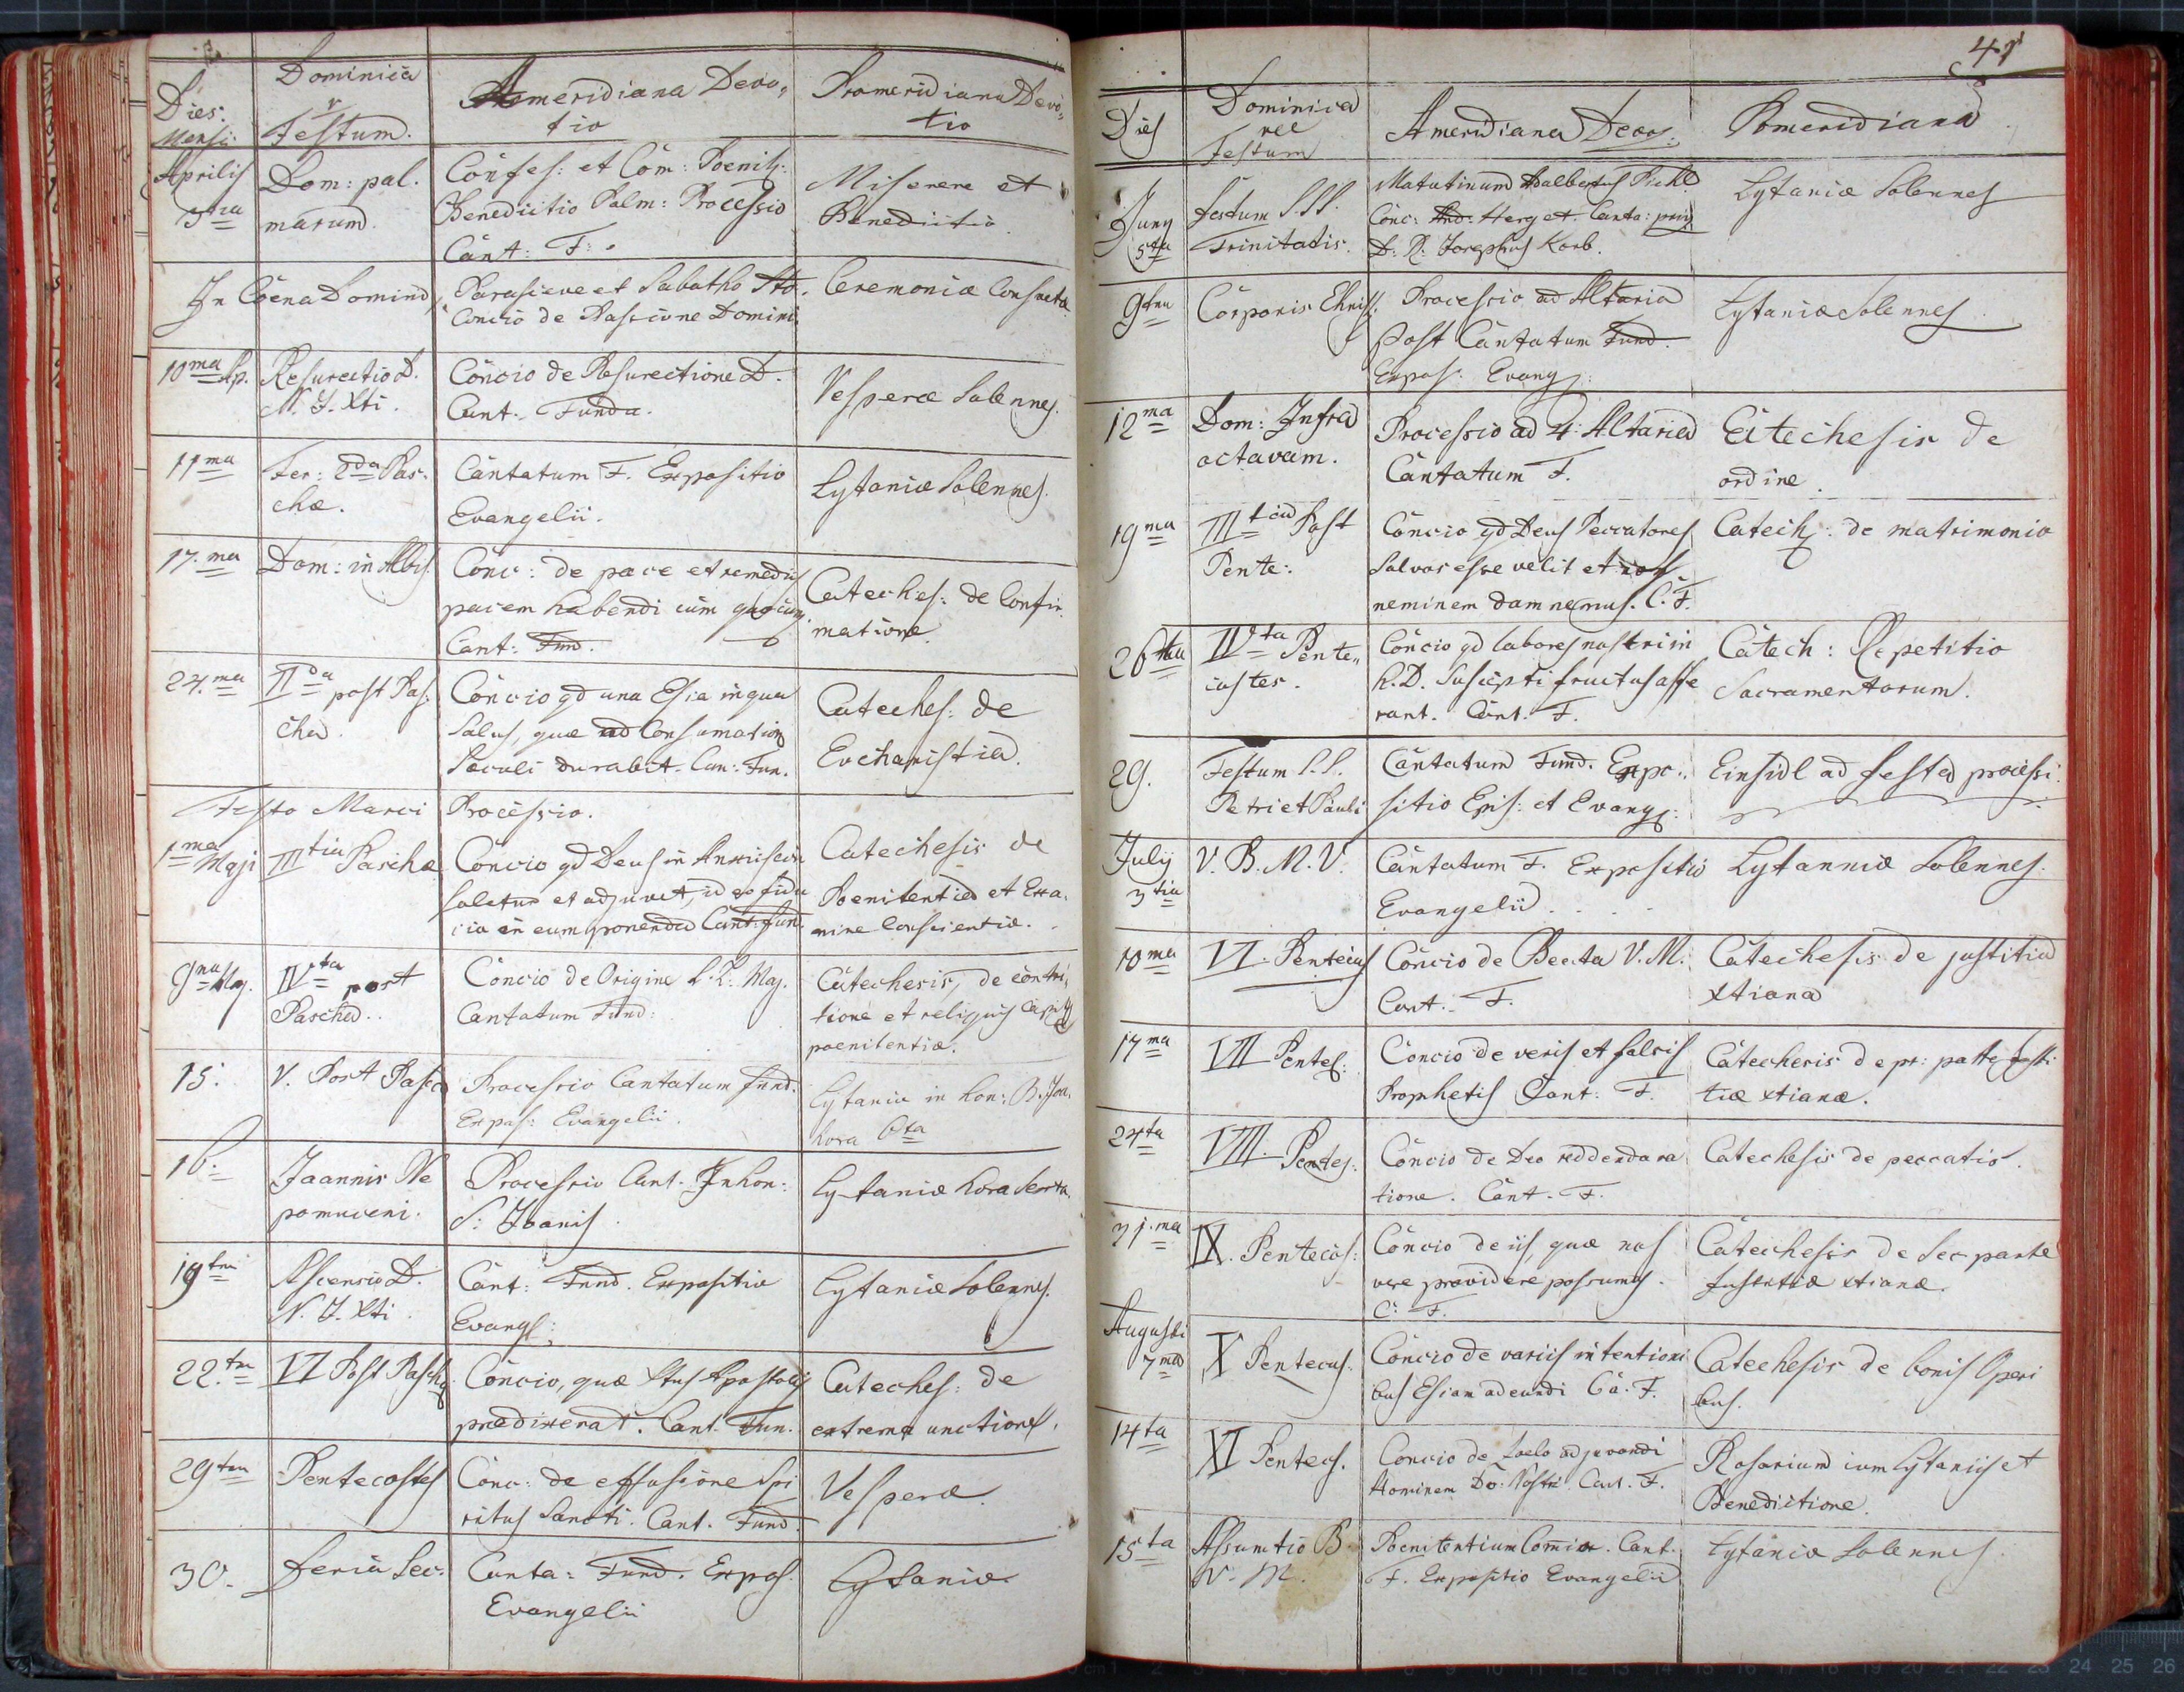 Dies.
Mensis
Dominica
v
Festum.
Ameridiana Devo„
tio
Pomeridiana Devo„
tio
Aprilis
3tia
Dom: pal.
marum.
Confes: et Com: Poenit:
Benedictio Palm: Processio
Cant: F:
Miserere et
Benedictio.
In Coena Domini,
Parasceve et Sabatho Sto.
Concio de Passione Domini
Ceremoniæ Consuetæ
10ma Ap.
Resurectio D.
N. J. Xti.
Concio de Resurectione D.
Cant. Funda.
Vesperæ Solennes.
11ma
Fer: 2da Pas.
chæ.
Cantatum F. Expositio
Evangelii.
Lytaniæ Solennes.
17.ma
Dom: in Albis.
Conc: de pace et remediis
pacem habendi cum quocum
Cant: Fund.
Cateches: de Confir
matione.
24.ma
IIda post Pas:
cha.
Concio qd una Esia in qua
Salus, quæ ad Consumation
Sæculi durabit. Can: Fun.
Cateches: de
Eucharistia.
Festo Marci
Processio.
1ma Maji
IIItia Paschæ
Concio qd Deus in
soletur et adjuvet, id eo fidu
cia in eum ponenda Cant: fun.
Catechesis de
Poenitentia et Exa.
mine Conscientiæ.
9na My.
IVta post
Pascha.
Concio de Origine L. L. Maj.
Cantatum Fund:
Catechesis, de contri,
tione et reliquis
poenitentiæ.
15.
V. Post Pasca
Processio Cantatum fund.
Expos: Evangelii.
Lytaniæ in hon: B. Joa.
hora 6ta
16.
Joannis Ne
pomuceni.
Processio Cant. In hon:
S: Joanis.
Lytaniæ hora Sexta.
19tni
Ascensio D.
N. J. Xti.
Cant: Fund. Expositio
Evangl:
Lytaniæ Solennes.
22.tu
VI Post Pascha
Concio, quæ Xtus Apostolis
prædixerat. Cant. Fun.
Cateches: de
extrema unctione.
29tna
Pentecostes
Conc: de effusione Spi
ritus Sancti. Cant. Fund.
Vesperæ.
30.
Feria Sec.
Canta: Fund. Expos.
Evangelii
Lytaniæ.
41
Dies
Dominica
vel
Festum
Ameridiana Devo:
Pomeridiana
Juny
5ta
festum S.S.
Trinitatis.
Matutinum Adalbertus Pichl
Conc: And: Herget. Canta:
D: R: Josephus Korb.
Lytaniæ Solennes
9tna
Corporis Christi
Processio ad Altaria
post Cantatum Fund.
Expos: Evang:
Lytaniæ Solennes
12ma
Dom: Infra
octavam.
Processio ad 4: Altaria
Cantatum F.
Catechesis de
ordine.
19ma
IIItia Post
Pente:
Concio qd Deus Peccatores
Salvos esse velit et
neminem damnemus. C. F.
Catech: de matrimonio
26ta
IVta Pente„
costes.
Concio qd labores nostri in
N.D. Suscepti fructus affe
rant. Cant. F.
Catech: Repetitio
Sacramentorum.
29.
Festum S.S.
Petri et Pauli
Cantatum Fund. Expo„
sitio Epis: et Evang:
Einsidl ad festa processi:
July
3tia
V. B. M. V.
Cantatum F. Expositio
Evangelii
Lytanniæ Solennes.
10ma
VI. Pentecos
Concio de Beata V. M.
Cant. F.
Catechesis de justitia
Xtiana
17ma
VII Pentes:
Concio de veris et falsis
Prophetis Cant: F.
Catechesis de pr: parte justi
tiæ xtianæ.
24ta
VIII. Pentes:
Concio de Deo reddenda ra
tione. Cant. F.
Catechesis de peccatis.
31.ma
IX. Pentecos:
Concio de iis, quæ nos
vere providere possumus.
C: F.
Catechesis de Sec parte
Justitiæ xtianæ.
Augusti
7ma
X Pentecos.
Concio de variis intentioni
bus Esiam adeundi Ca. F.
Catechesis de bonis Operi
bus.
14ta
XI Pentecs.
Concio de Zaelo adjuvandi
Hominem Do: Nostri. Cant. F.
Rosarium cum Lytaniis et
Benedictione.
15ta
Assumtio B
V. M.
Poenitentium Comio. Cant.
F. Expositio Evangelii
Lytaniæ Solennes.